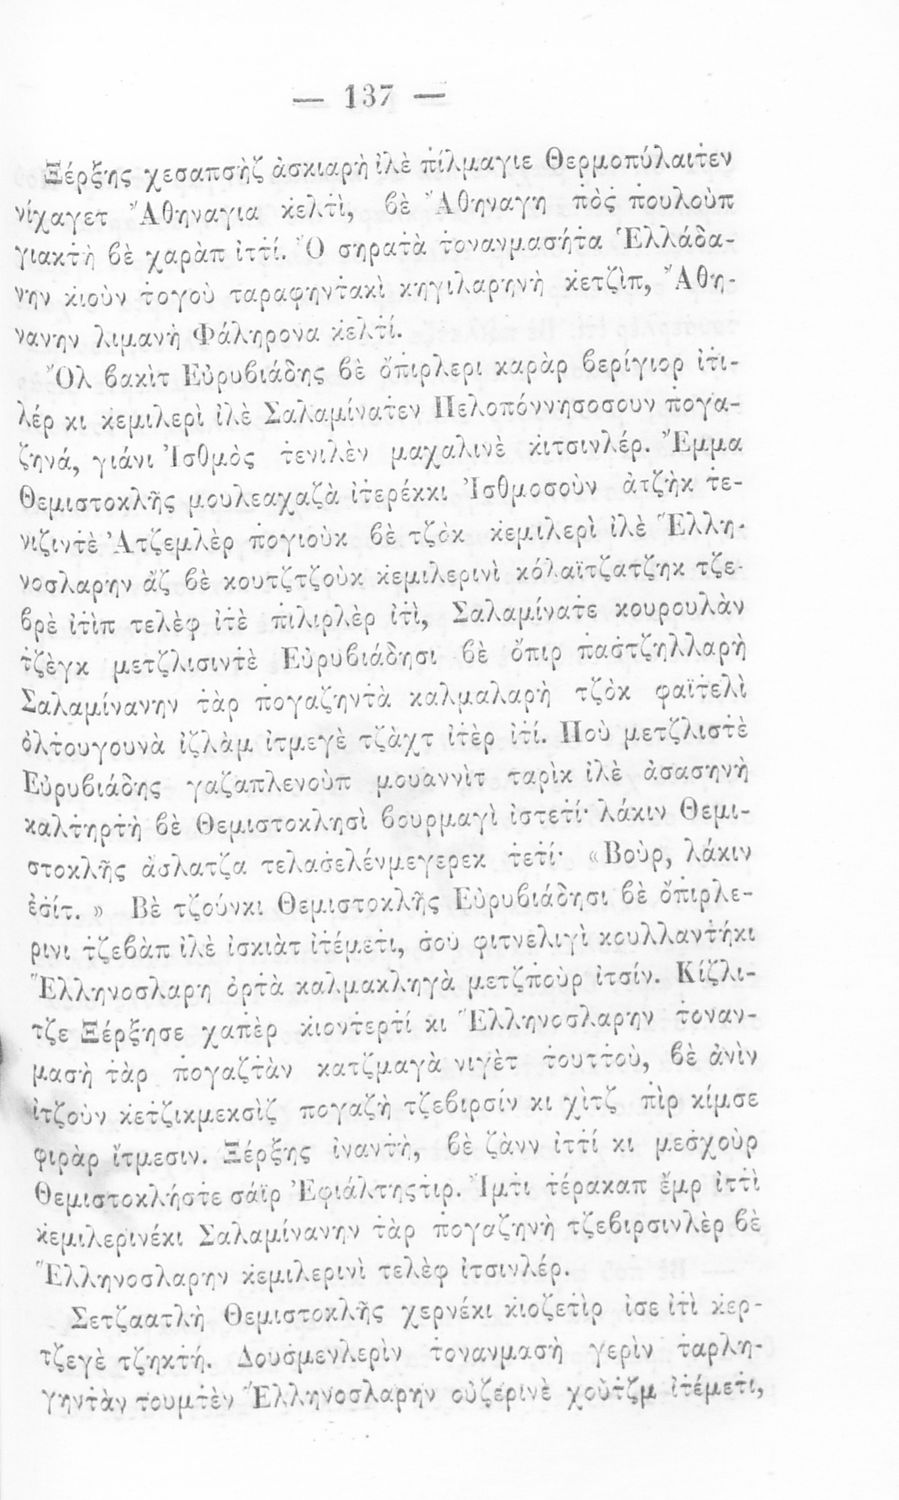 — 137 —
Ξέρξης χεσαπσὴζ ἀσκιαρὴ ἰλὲ πίλμαγιε Θερμοπύλαιτεν
νίχαγετ Ἀθηναγια κελτὶ, βὲ Ἀθηναγη πὸς πουλοὺπ
γιακτὴ βὲ χαρὰπ ἰττί. Ὀ σηρατὰ τονανμασήτα Ἑλλάδα-
νην κιοὺν τογοὺ ταραφηντακὶ κηγιλαρηνὴ κετζὶπ, Ἀθη-
νανην λιμανὴ Φάληρονα κελτί.
Ὂλ βακὶτ Εὐρυβιάδης βὲ ὄπιρλερι καρὰρ βερίγιορ ἰτι-
λέρ κι κεμιλερὶ ἰλὲ Σαλαμίνατεν Πελοπόννησοσουν πογα-
ζηνά, γιάνι Ἰσθμὸς τενιλὲν μαχαλινὲ κιτσινλέρ. Ἔμμα
Θεμιστοκλῆς μουλεαχαζὰ ἰτερέκκι Ἰσθμοσοὺν ἀτζὴκ τε-
νιζιντὲ Ἀτζεμλὲρ πογιοὺκ βὲ τζὸκ κεμιλερὶ ἰλὲ Ἕλλη-
νοσλαρην ἂζ βὲ κουτζτζοὺκ κεμιλερινὶ κόλαϊτζατζηκ τζε-
βρὲ ἰτὶπ τελὲφ ἰτὲ πιλιρλὲρ ἰτὶ, Σαλαμίνατε κουρουλὰν
τζὲγκ μετζλισιντὲ Εὐρυβιάδησι βὲ ὄπιρ παστζηλλαρὴ
Σαλαμίνανην τὰρ πογαζηντὰ καλμαλαρὴ τζὸκ φαϊτελὶ
ὀλτουγουνὰ ἰζλὰμ ἰτμεγὲ τζὰχτ ἰτὲρ ἰτί. Ποὺ μετζλιστὲ
Εὐρυβιάδης γαζαπλενοὺπ μουαννὶτ ταρὶκ ἰλὲ ἀσασηνὴ
καλτηρτὴ βὲ Θεμιστοκλησὶ βουρμαγὶ ἰστετί· λάκιν Θεμι-
στοκλῆς ἄσλατζα τελασελένμεγερεκ τετί· «Βοὺρ, λάκιν
ἐσίτ.» Βὲ τζούνκι Θεμιστοκλῆς Εὐρυβιάδησι βὲ ὄπιρλε-
ρινι τζεβὰπ ἰλὲ ἰσκιὰτ ἰτέμετι, σοὺ φιτνελιγὶ κουλλαντήκι
Ἕλληνοσλαρη ὀρτὰ καλμακληγὰ μετζποὺρ ἰτσίν. Κίζλι-
τζε Ξέρξησε χαπὲρ κιοντερτί κι Ἕλληνοσλαρην τοναν-
μασὴ τὰρ πογαζτὰν κατζμαγὰ νιγὲτ τουττοὺ, βὲ ἀνὶν
ἰτζοὺν κετζικμεκσὶζ πογαζὴ τζεβιρσίν κι χὶτζ πὶρ κίμσε
φιρὰρ ἴτμεσιν. Ξέρξης ἰναντὴ, βὲ ζὰνν ἰττί κι μεσχοὺρ
Θεμιστοκλήστε σάϊρ Ἐφιάλτηςτιρ. Ἰμτι τέρακαπ ἔμρ ἰττὶ
κεμιλερινέκι Σαλαμίνανην τὰρ πογαζηνὴ τζεβιρσινλὲρ βὲ
Ἕλληνοσλαρην κεμιλερινὶ τελὲφ ἰτσινλέρ.
Σετζαατλὴ Θεμιστοκλῆς χερνέκι κιοζετὶρ ἰσε ἰτὶ κερ-
τζεγὲ τζηκτή. Δουσμενλερὶν τονανμασὴ γερὶν ταρλη-
γηντὰν τουμτὲν Ἕλληνοσλαρην οὐζερινὲ χοὺτζμ ἰτέμετι,